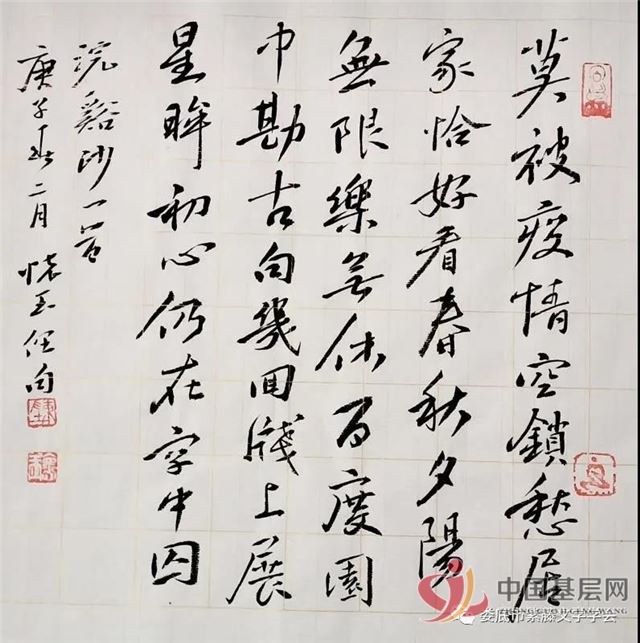 莫被疫情空鎖愁居
家恰好看春秋夕陽
無限樂無休百度園
中勘古句幾回牋上展
星眸初心仍在字中囚
浣谿沙一首
庚子春二月
中国基层网
娄底市紫藤文学学会